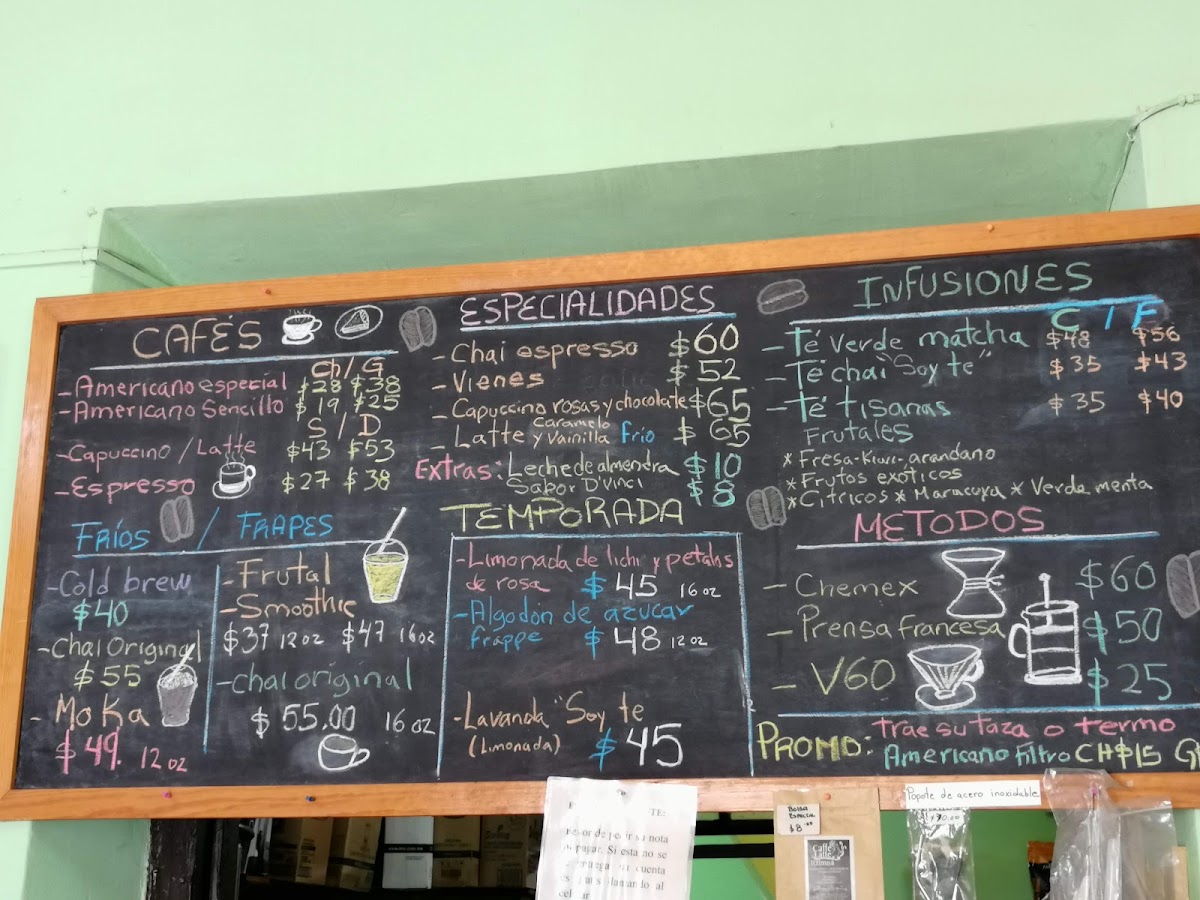 CAFÉS
Ch/G
- Americano especial $28 $38
- Americano Sencillo $19 $25
S/D
- Capuccino/Latte $43 $53
- Espresso $27 $38
ESPECIALIDADES
- Chai espresso $60
- Vienes $52
- Capuccino rosas y chocolate $65
- Latte Caramelo y Vainilla frío $65
Extras: Leche de almendra $10
Sabor D'Vinci $8
INFUSIONES
C / F
- Té verde matcha $48 $56
- Té chai "Soy te" $35 $43
- Té tisanas $35 $40
Frutales
* Fresa-Kiwi-arandano
* Frutos exóticos
* Citricos * Maracuya * Verde menta
FRÍOS / FRAPES
- Cold brew
$40
- Chai Original
$55
- Moka
$49. 12 oz
- Frutal
- Smoothie
$37 12 oz $47 16 oz
- chai original
$55.00 16 oz
TEMPORADA
- Limonada de lichi y petalos
de rosa $45 16 oz
- Algodón de azucar
frappe $48 12 oz
- Lavanda "Soy te
(Limonada) $45
METODOS
- Chemex $60
- Prensa francesa $50
- V60 $25
PROMO: trae su taza o termo
Americano filtro CH$15
Popote de acero inoxidable
Bolsa
ESPECIAL
$8.00
Caffé
Latte
TE:
su nota
pagar. Si esta no se
cuenta
al